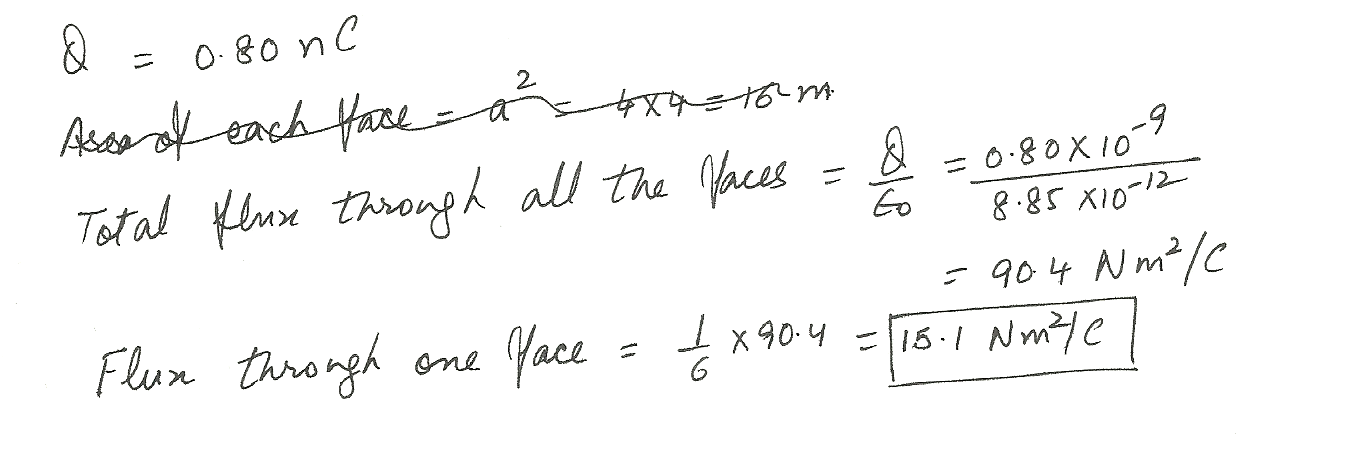 Q = 0.80 nC
Area of each face = a² = 4x4 = 16 m
Total flux through all the faces = Q/ε0 = 0.80 X 10^-9 / 8.85 X10^-12
= 90.4 Nm²/C
Flux through one face = 1/6 x 90.4 = 15.1 Nm²/C